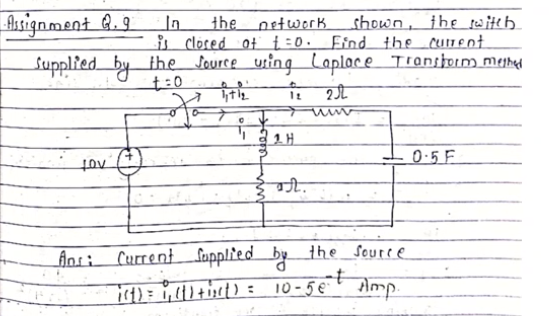 Assignment Q. 9 In the network shown, the switch
is closed at t=0. Find the current
supplied by the source using Laplace Transform method
t=0
i1+i2 i2 2Ω
i1
1H
10V + 0.5 F
Ω
Ans: Current supplied by the source
i(t) = i1(t)+i2(t) = 10-5e^-t Amp.